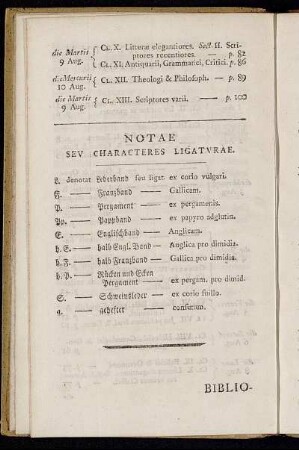 die Martis { CL. X. Litteræ elegantiores. Sect. II. Scri-
9 Aug. ptores recentiores. — p. 82
CL. XI. Antiquarii, Grammatici, Critici. p. 86
d. Mercurii { CL. XII. Theologi & Philosoph. — p. 89
10 Aug.
die Martis { CL. XIII. Scriptores varii. — p. 100
9 Aug.
NOTAE
SEV CHARACTERES LIGATVRAE.
L. denotat Lederband seu ligat. ex corio vulgari.
F. — Franzband — Gallicam.
P. — Pergament — ex pergamenis.
Pp. — Pappband — ex papyro adglutin.
E. — Englischband — Anglicam.
h. E. — halb Engl. Band — Anglica pro dimidia.
h. F. — halb Franzband — Gallica pro dimidia.
h. P. — Rücken und Ecken
Pergament — ex pergam. pro dimid.
S. — Schweinsleder — ex corio suillo.
g. — geheftet — consutum.
BIBLIO-